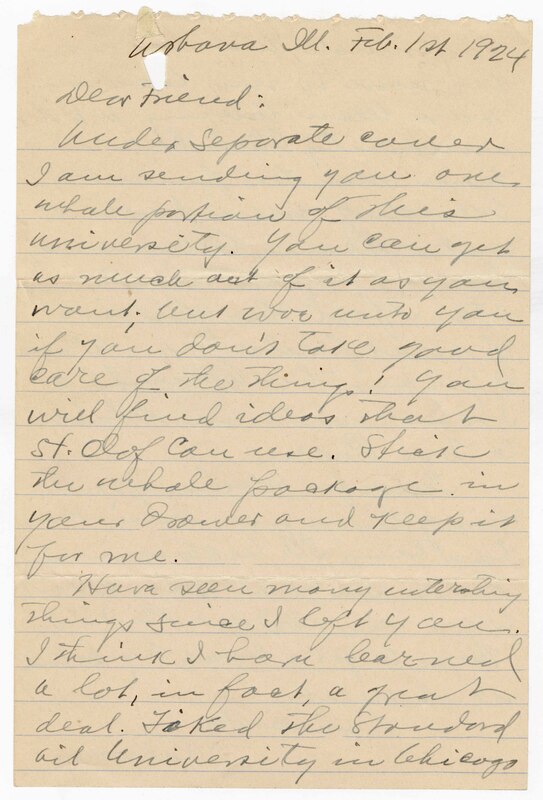 Urbana Ill. Feb. 1st 1924
Dear Friend:
Under separate cover
I am sending you one
whole portion of this
university. You can get
as much out of it as you
want, but woe unto you
if you don't take good
care of the things! You
will find ideas that
St. Olof can use. Stick
the whole package in
your drawer and keep it
for me.
Have seen many interesting
things since I left you.
I think I have learned
a lot, in fact, a great
deal. the Standard
oil University in Chicago